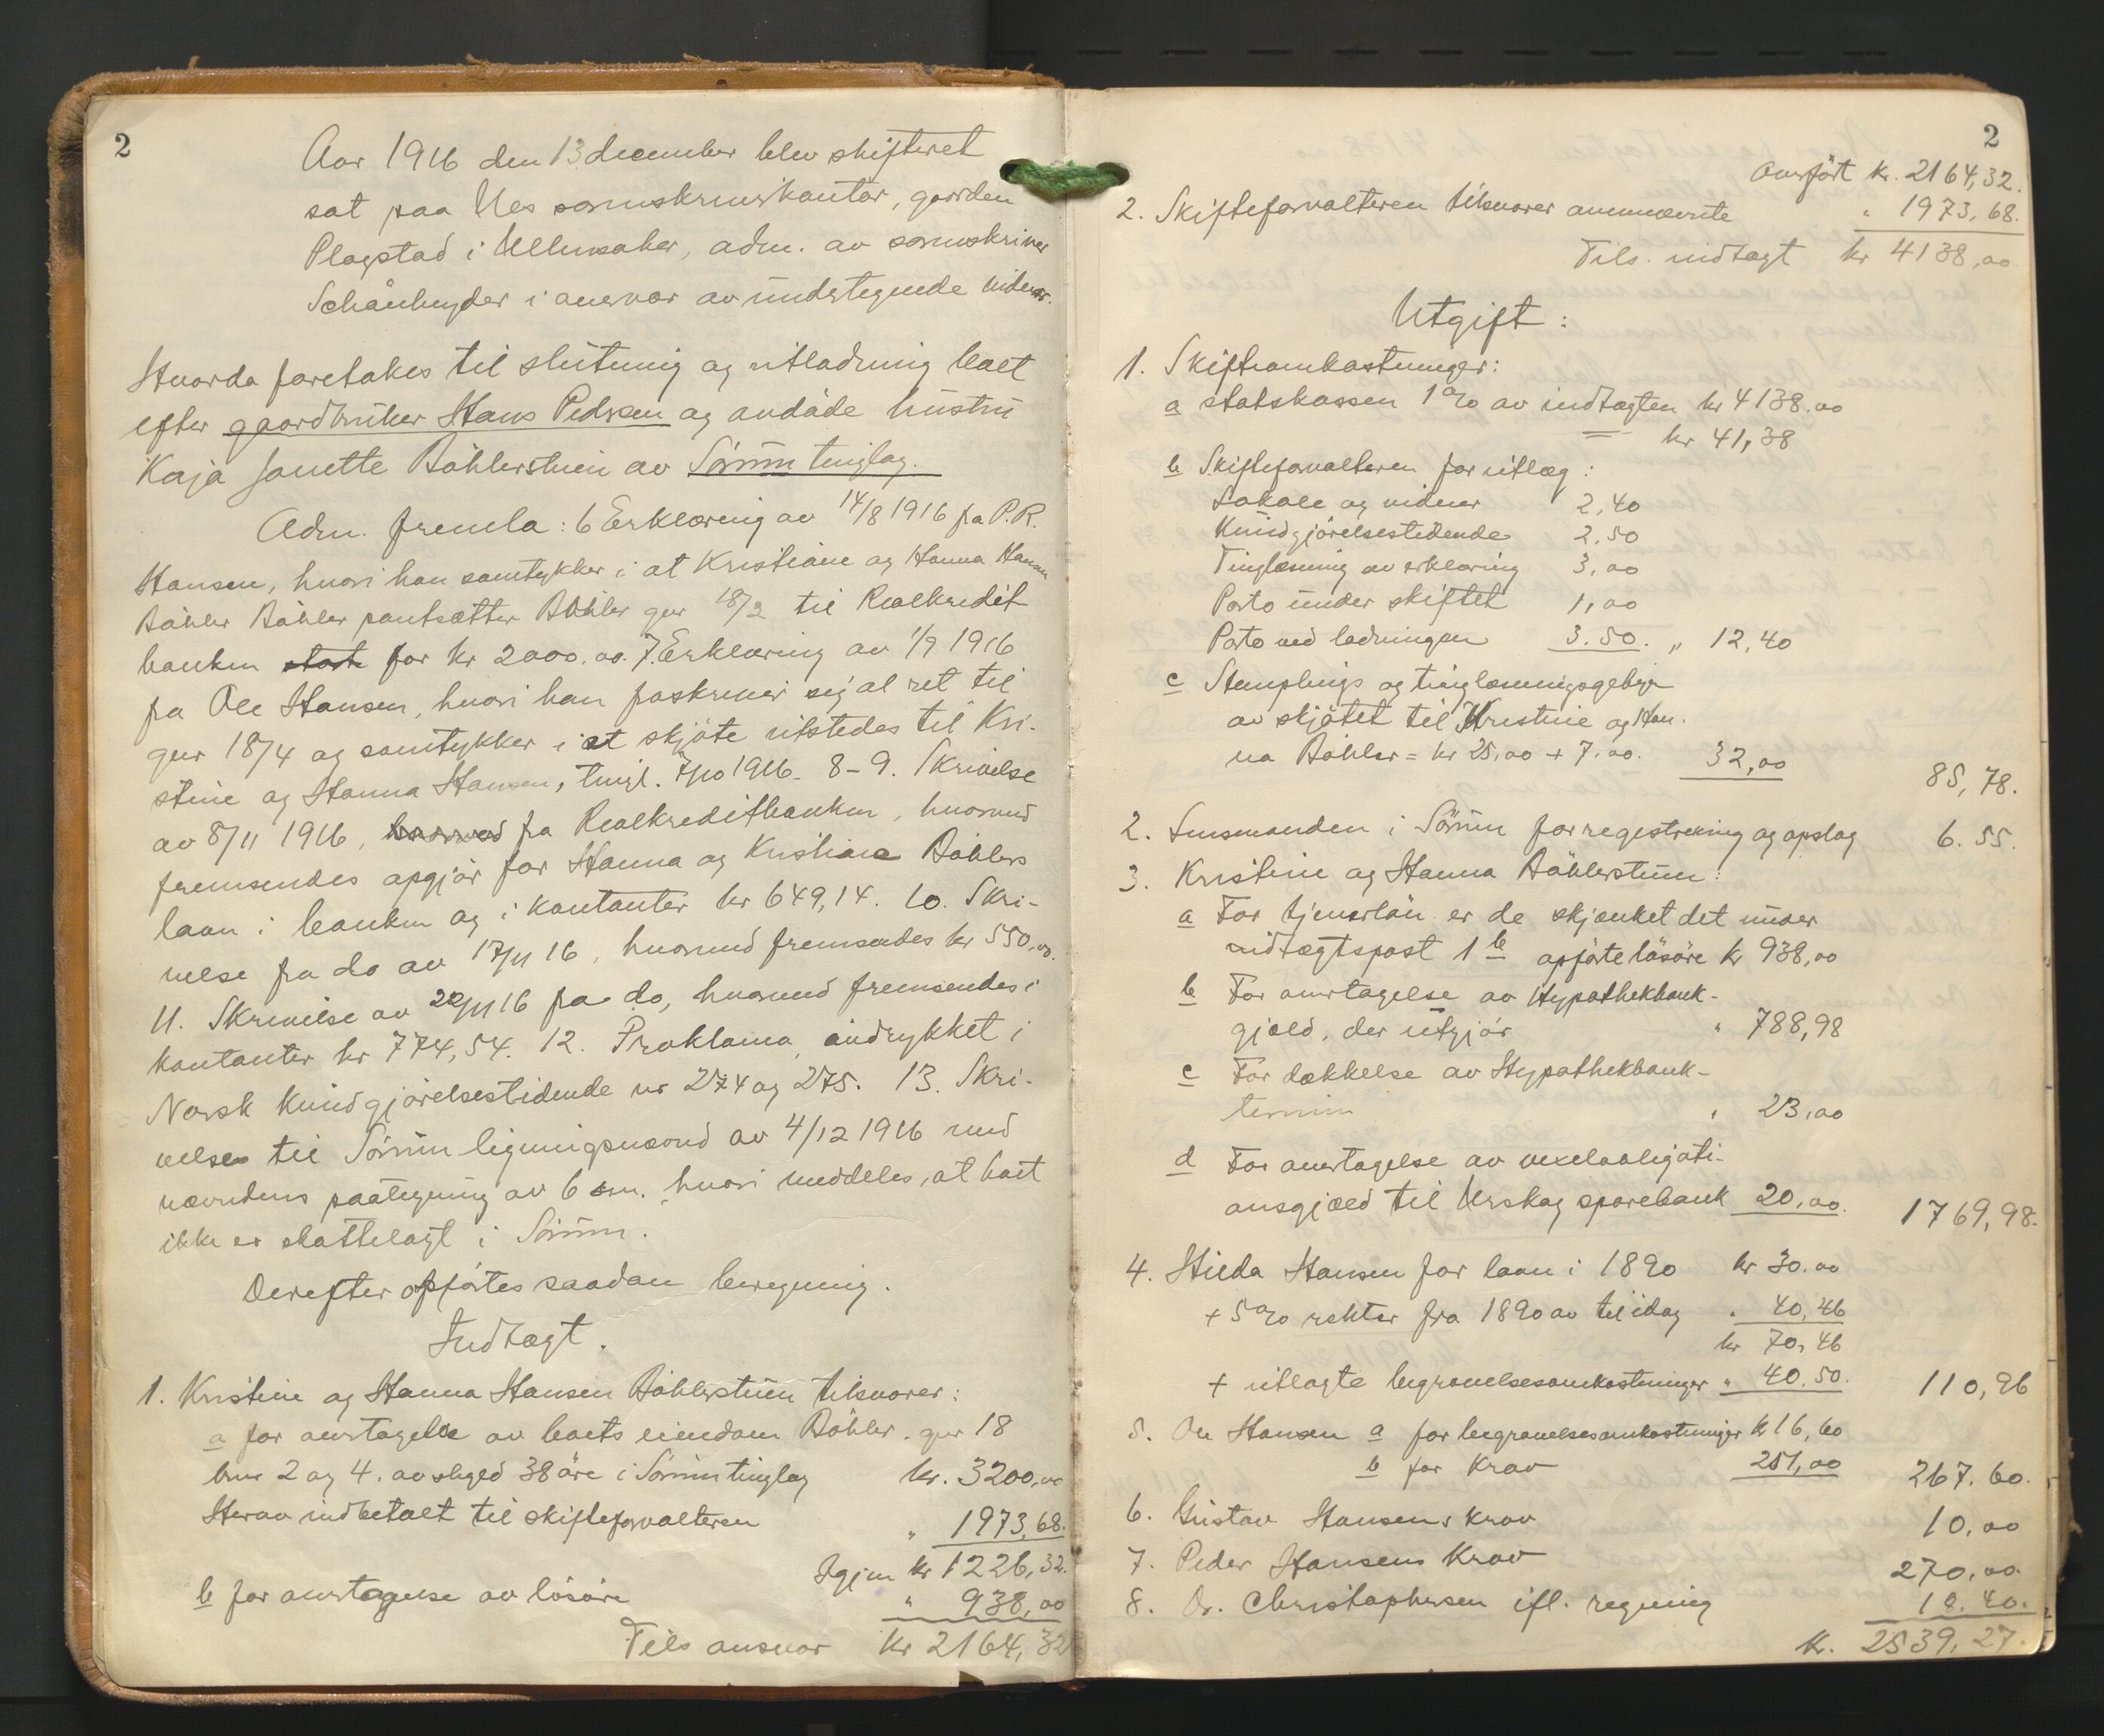 2
Aar 1916 den 13 december blev skifteret
sat paa Nes sorenskriverkontor, gaarden
Plogstad i Ullensaker, adm. av sorenskriver
Schönheyder i overvær av undertegnede vidner.
Hvorda foretokes til slutning og utlodning boet
efter gaardbruker Hans Pedersen og avdöde hustru
Kaja Janette Böhlerstuen av Sörum tinglag.
Adm. fremla: 6 Erklæring av 14/8 1916 fra P.R.
Hansen, hvori han samtykker i at Kristiane og Hanna Hansen
Böhler Böhler pantsætter Böhler gnr 18/2 til Realkredit
banken for kr 2000.00. 7. Erklæring av 1/9 1916
fra Ole Hansen, hvori han fraskriver sig al ret til
gnr 18/4 og samtykker i at skjöte utstedes til Kri-
stine og Hanna Hansen, tingl. 7/10 1916. 8-9. Skrivelse
av 8/11 1916, fra Realkreditbanken, hvorved
fremsendes opgjör for Hanna og Kristiane Böhlers
laan i banken og i kontanter kr 649,14. 10. Skri-
velse fra do av 17/11 16, hvorved fremsendes kr 550,00.
11. Skrivelse av 22/11 16 fra do, hvorved fremsendes i
kontanter kr 774,54. 12. Proklama indrykket i
Norsk Kundgjörelsestidende nr 274 og 275. 13. Skri-
velse til Sörum ligningsnævnd av 4/12 1916 med
nævndens paategning av 6 s.m. hvori meddeles, at boet
ikke er skattelagt i Sörum.
Derefter opförtes saadan beregning.
Indtægt.
1. Kristine og Hanna Hansen Böhlerstuen tilsvarer:
a for overtagelse av boets eiendom Böhler. gnr 18
bnr 2 og 4. av skyld 38 öre i Sörum tinglag kr. 3200,00
Herav indbetalt til skifteforvalteren " 1973,68.
Igjen kr 1226,32.
b for overtagelse av lösöre " 938,00
Tils ansvar kr 2164,32
2
Overfört kr. 2164,32.
2. Skifteforvalteren tilsvarer ovennævnte " 1973,68.
Tils. indtægt kr 4138,00
Utgift:
1. Skifteomkostninger:
a statskassen 1% av indtægten kr 4138.00
= kr 41,38
b Skifteforvalteren for utlæg:
Lokale og vidner 2,40
Kundgjörelsestidende 2.50
Tinglæsning av erklæring 3,00
Porto under skiftet 1,00
Porto ved lodningen 3.50. " 12,40
c Stemplings og tinglæsningsgebyr
av skjötet til Kristine og Han-
na Böhler = kr 25,00 + 7.00. 32,00 85,78.
2. Lensmanden i Sörum for registrering og opslag 6.55.
3. Kristine og Hanna Böhlerstuen:
a For tjenerlön er de skjænket det under
indtægtspost 1 b opförte lösöre kr 938,00
b For overtagelse av Hypothekbank-
gjæld, der utgjör " 788,98
c For dækkelse av Hypothekbank-
termin " 23,00
d For overtagelse av vexelobligati-
onsgjæld til Urskog sparebank 20,00. 1769,98.
4. Hilda Hansen for laan i 1890 kr 30.00
+ 5% renter fra 1890 av til idag " 40,46
kr 70,46
+ utlagte begravelsesomkostninger " 40.50. 110,96
5. Ole Hansen a for begravelsesomkostninger kr 16,60
b for krav 251,00 267.60.
6. Gustav Hansens krav 10,00
7. Peder Hansens krav 270,00.
8. Dr. Christophersen ifl. regning 18.40.
kr. 2539,27.